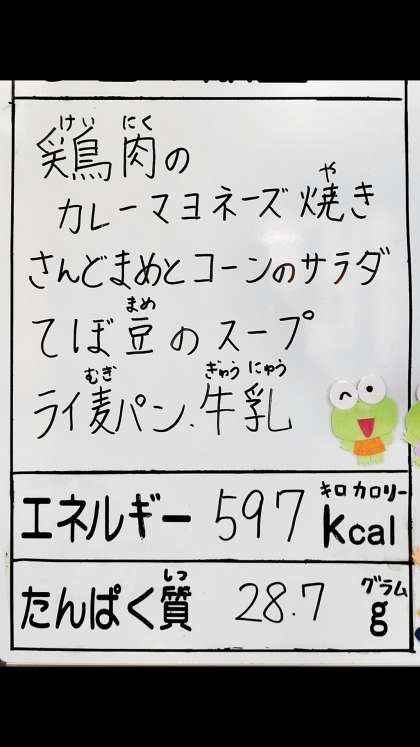 鶏肉の
けい にく
カレーマヨネーズ焼き
や
さんどまめとコーンのサラダ
てぼ豆のスープ
まめ
ライ麦パン、牛乳
むぎ ぎゅう にゅう
エネルギー 597 kcal
キロ カロリー
たんぱく質 28.7 g
しつ グラム